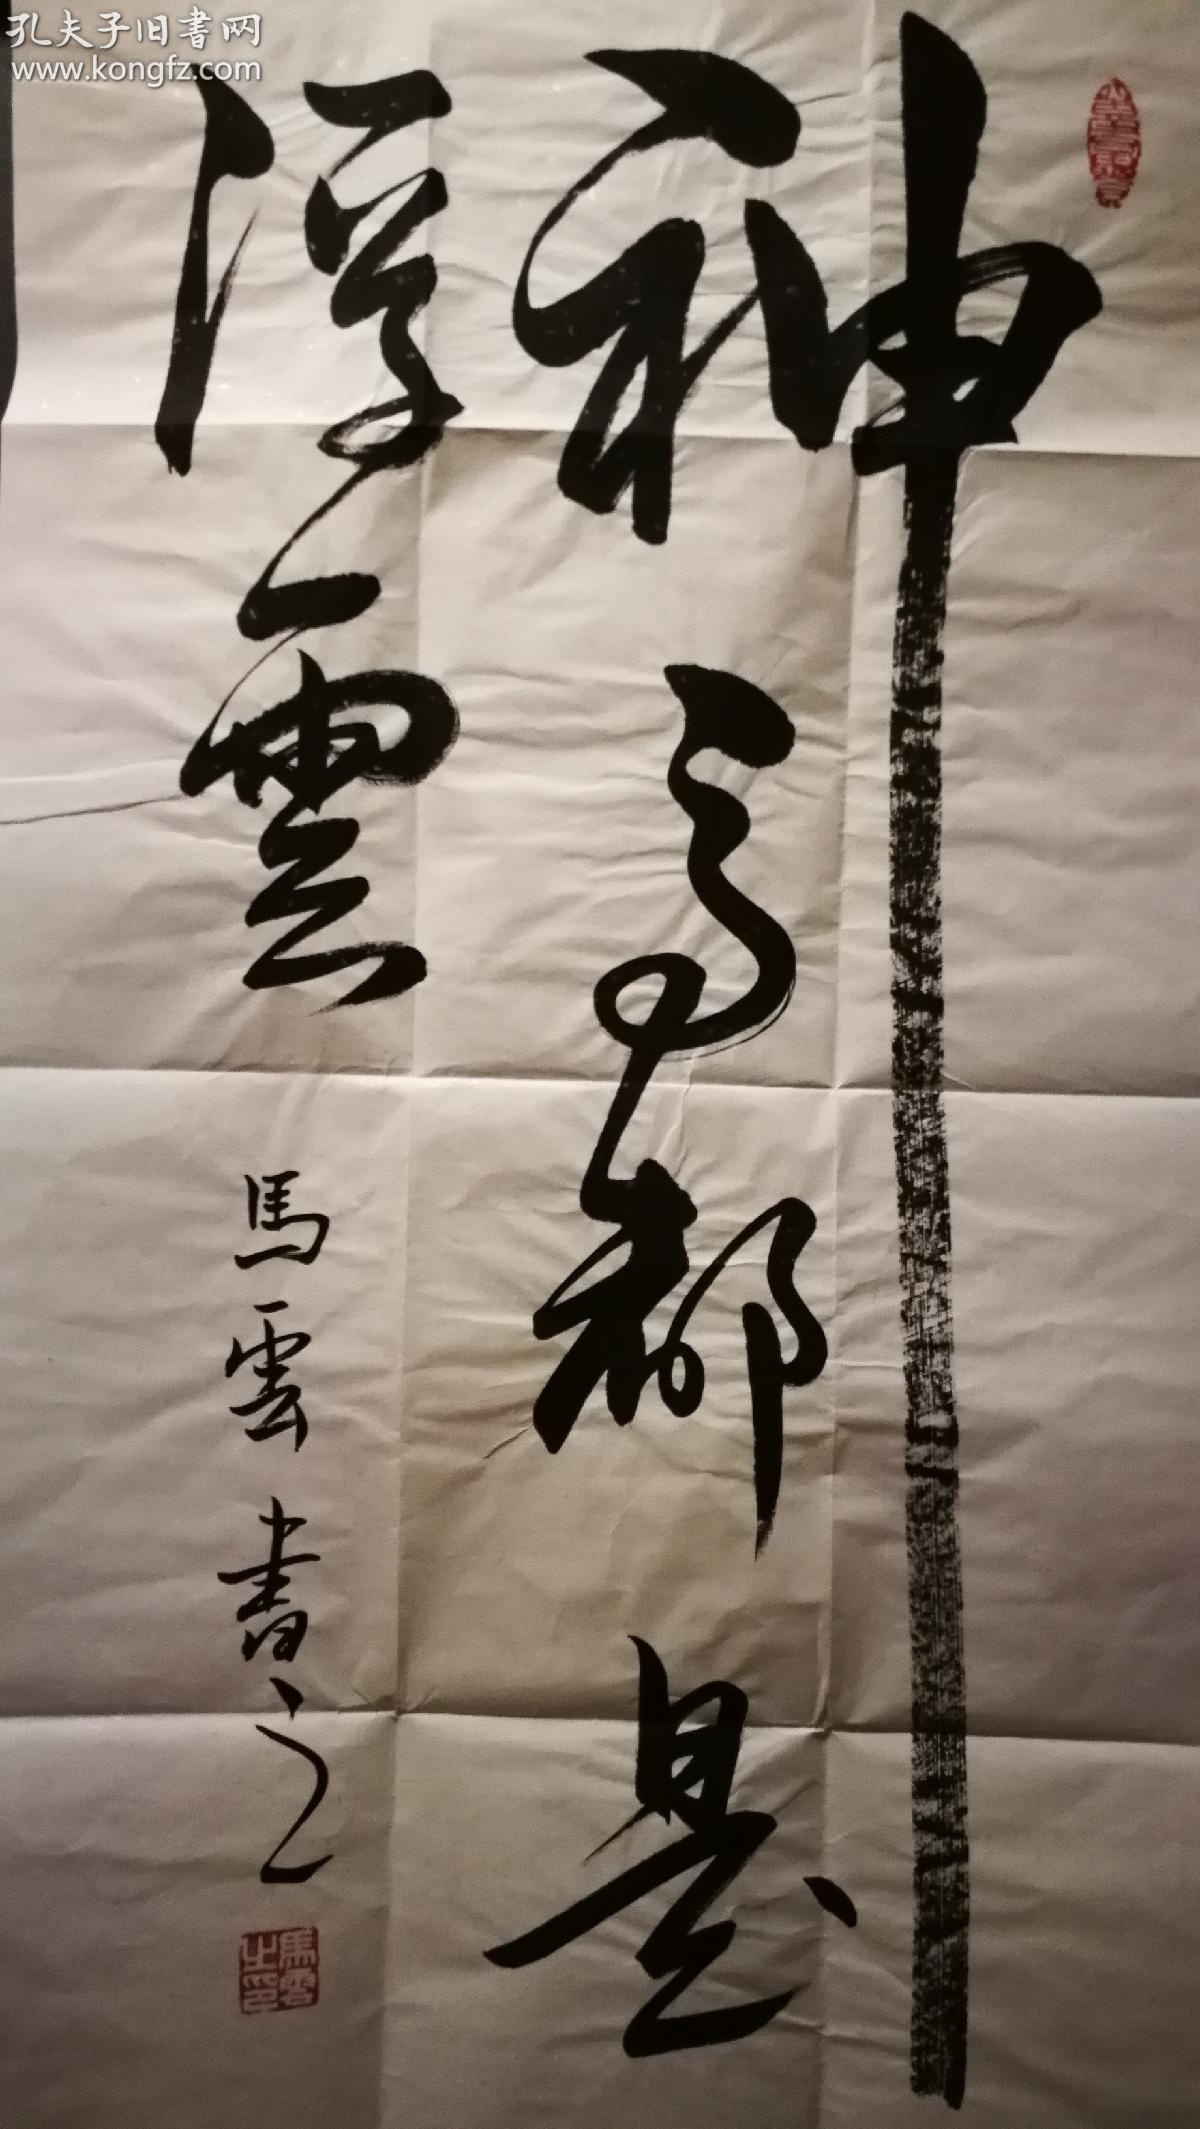 孔夫子旧書网
www.kongfz.com
神马都是
浮雲
馬雲書之
馬雲之印